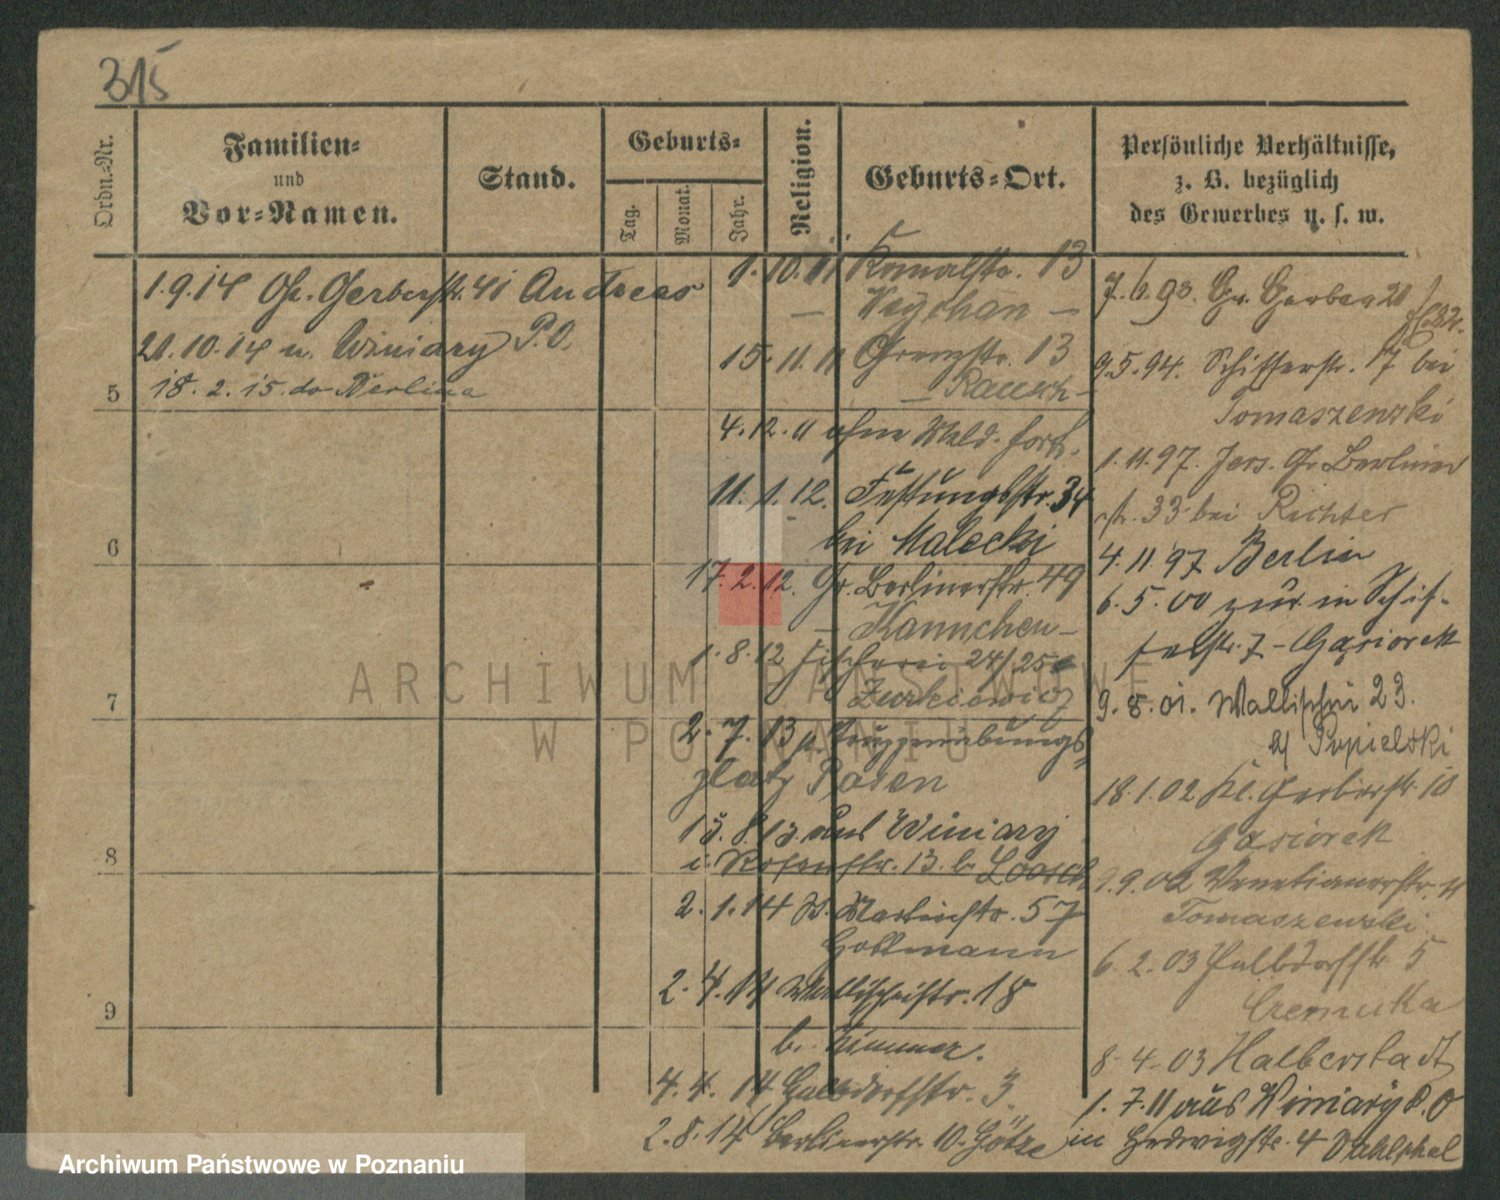 315
Ordn.-Nr.
Familien-
und
Vor-Namen.
Stand.
Geburts-
Tag.
Monat.
Jahr.
Religion.
Geburts-Ort.
Persönliche Verhältnisse,
z. B. bezüglich
des Gewerbes u. s. w.
1.9.14 Gr. Gerberstr. 41 Andreas
21.10.14 n. Winiary P.O.
18.2.15. do Berlina
5
6
7
8
9
1.10.11 Kanalstr. 13
15.11.11 Grenzstr. 13
— Rausch —
4.12.11
11.1.12. Festungsstr. 34
bei Malecki
17.2.12. Gr. Berlinerstr. 49
— Hannchen —
1.8.12 Fischerei 24/25
Zurkiewicz
2.7.13 n. Truppenübungs-
platz Posen
13.8.13 aus Winiary
i. Rosenstr. 13. b. Loosch
2.1.14 St. Martinstr. 57
Gollmann
2.4.14 Wallischeistr. 18
b. Zimmer.
4.4.14 Halbdorfstr. 3
2.8.14 Berlinerstr. 10. Götze
7.6.93. Gr. Gerber 20
9.5.94. Schifferstr. 17 bei
Tomaszewski
1.11.97. Jers. Gr. Berliner
str. 33 bei Richter
4.11 97 Berlin
6.5.00 zur. in Schif-
ferstr. 7 - Gasiorek
9.8.01. Wallischei 23.
b/ Popielski
18.1.02 Kl. Gerberstr. 10
Gasiorek
9.9.02 Venetianerstr. 11
Tomaszewski
6.2.03 Halbdorfstr. 5
8-4-03 Halberstadt
1.7.11 aus Winiary P.O
in Hedwigstr. 4
ARCHIWUM PAŃSTWOWE
W POZNANIU
Archiwum Państwowe w Poznaniu